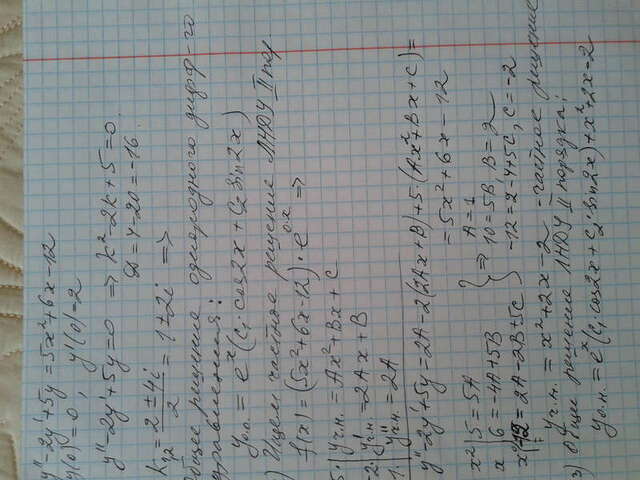 y''-2y'+5y=5x²+6x-12
y(0)=0, y'(0)=2
y''-2y'+5y=0 ⇒ k²-2k+5=0
D=4-20=-16
k₁,₂ = (2±4i)/2 = 1±2i ⇒
Общее решение однородного дифф-го
уравнения:
yо.о. = eˣ(C₁·cos2x+C₂·sin2x)
) Ищем частное решение ЛНДУ II пор.
f(x)=(5x²+6x-12)·e⁰·ˣ ⇒
5·| yч.н. = Ax²+Bx+C
-2| y'ч.н. = 2Ax+B
1·| y''ч.н. = 2A
y''-2y'+5y=2A-2(2Ax+B)+5·(Ax²+Bx+C)=
=5x²+6x-12
x²| 5=5A } A=1
x| 6=-4A+5B } ⇒ 10=5B, B=2
x⁰| -12=2A-2B+5C } -12=2-4+5C, C=-2
yч.н. = x²+2x-2 -частное решение
3) Общее решение ЛНДУ II порядка:
yо.н. = eˣ(C₁·cos2x+C₂·sin2x)+x²+2x-2